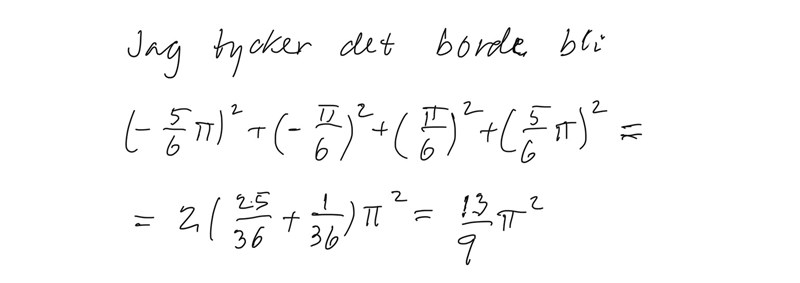 Jag tycker det borde bli
(- 5/6 π)² + (- π/6)² + (π/6)² + (5/6 π)² =
= 2(25/36 + 1/36)π² = 13/9 π²